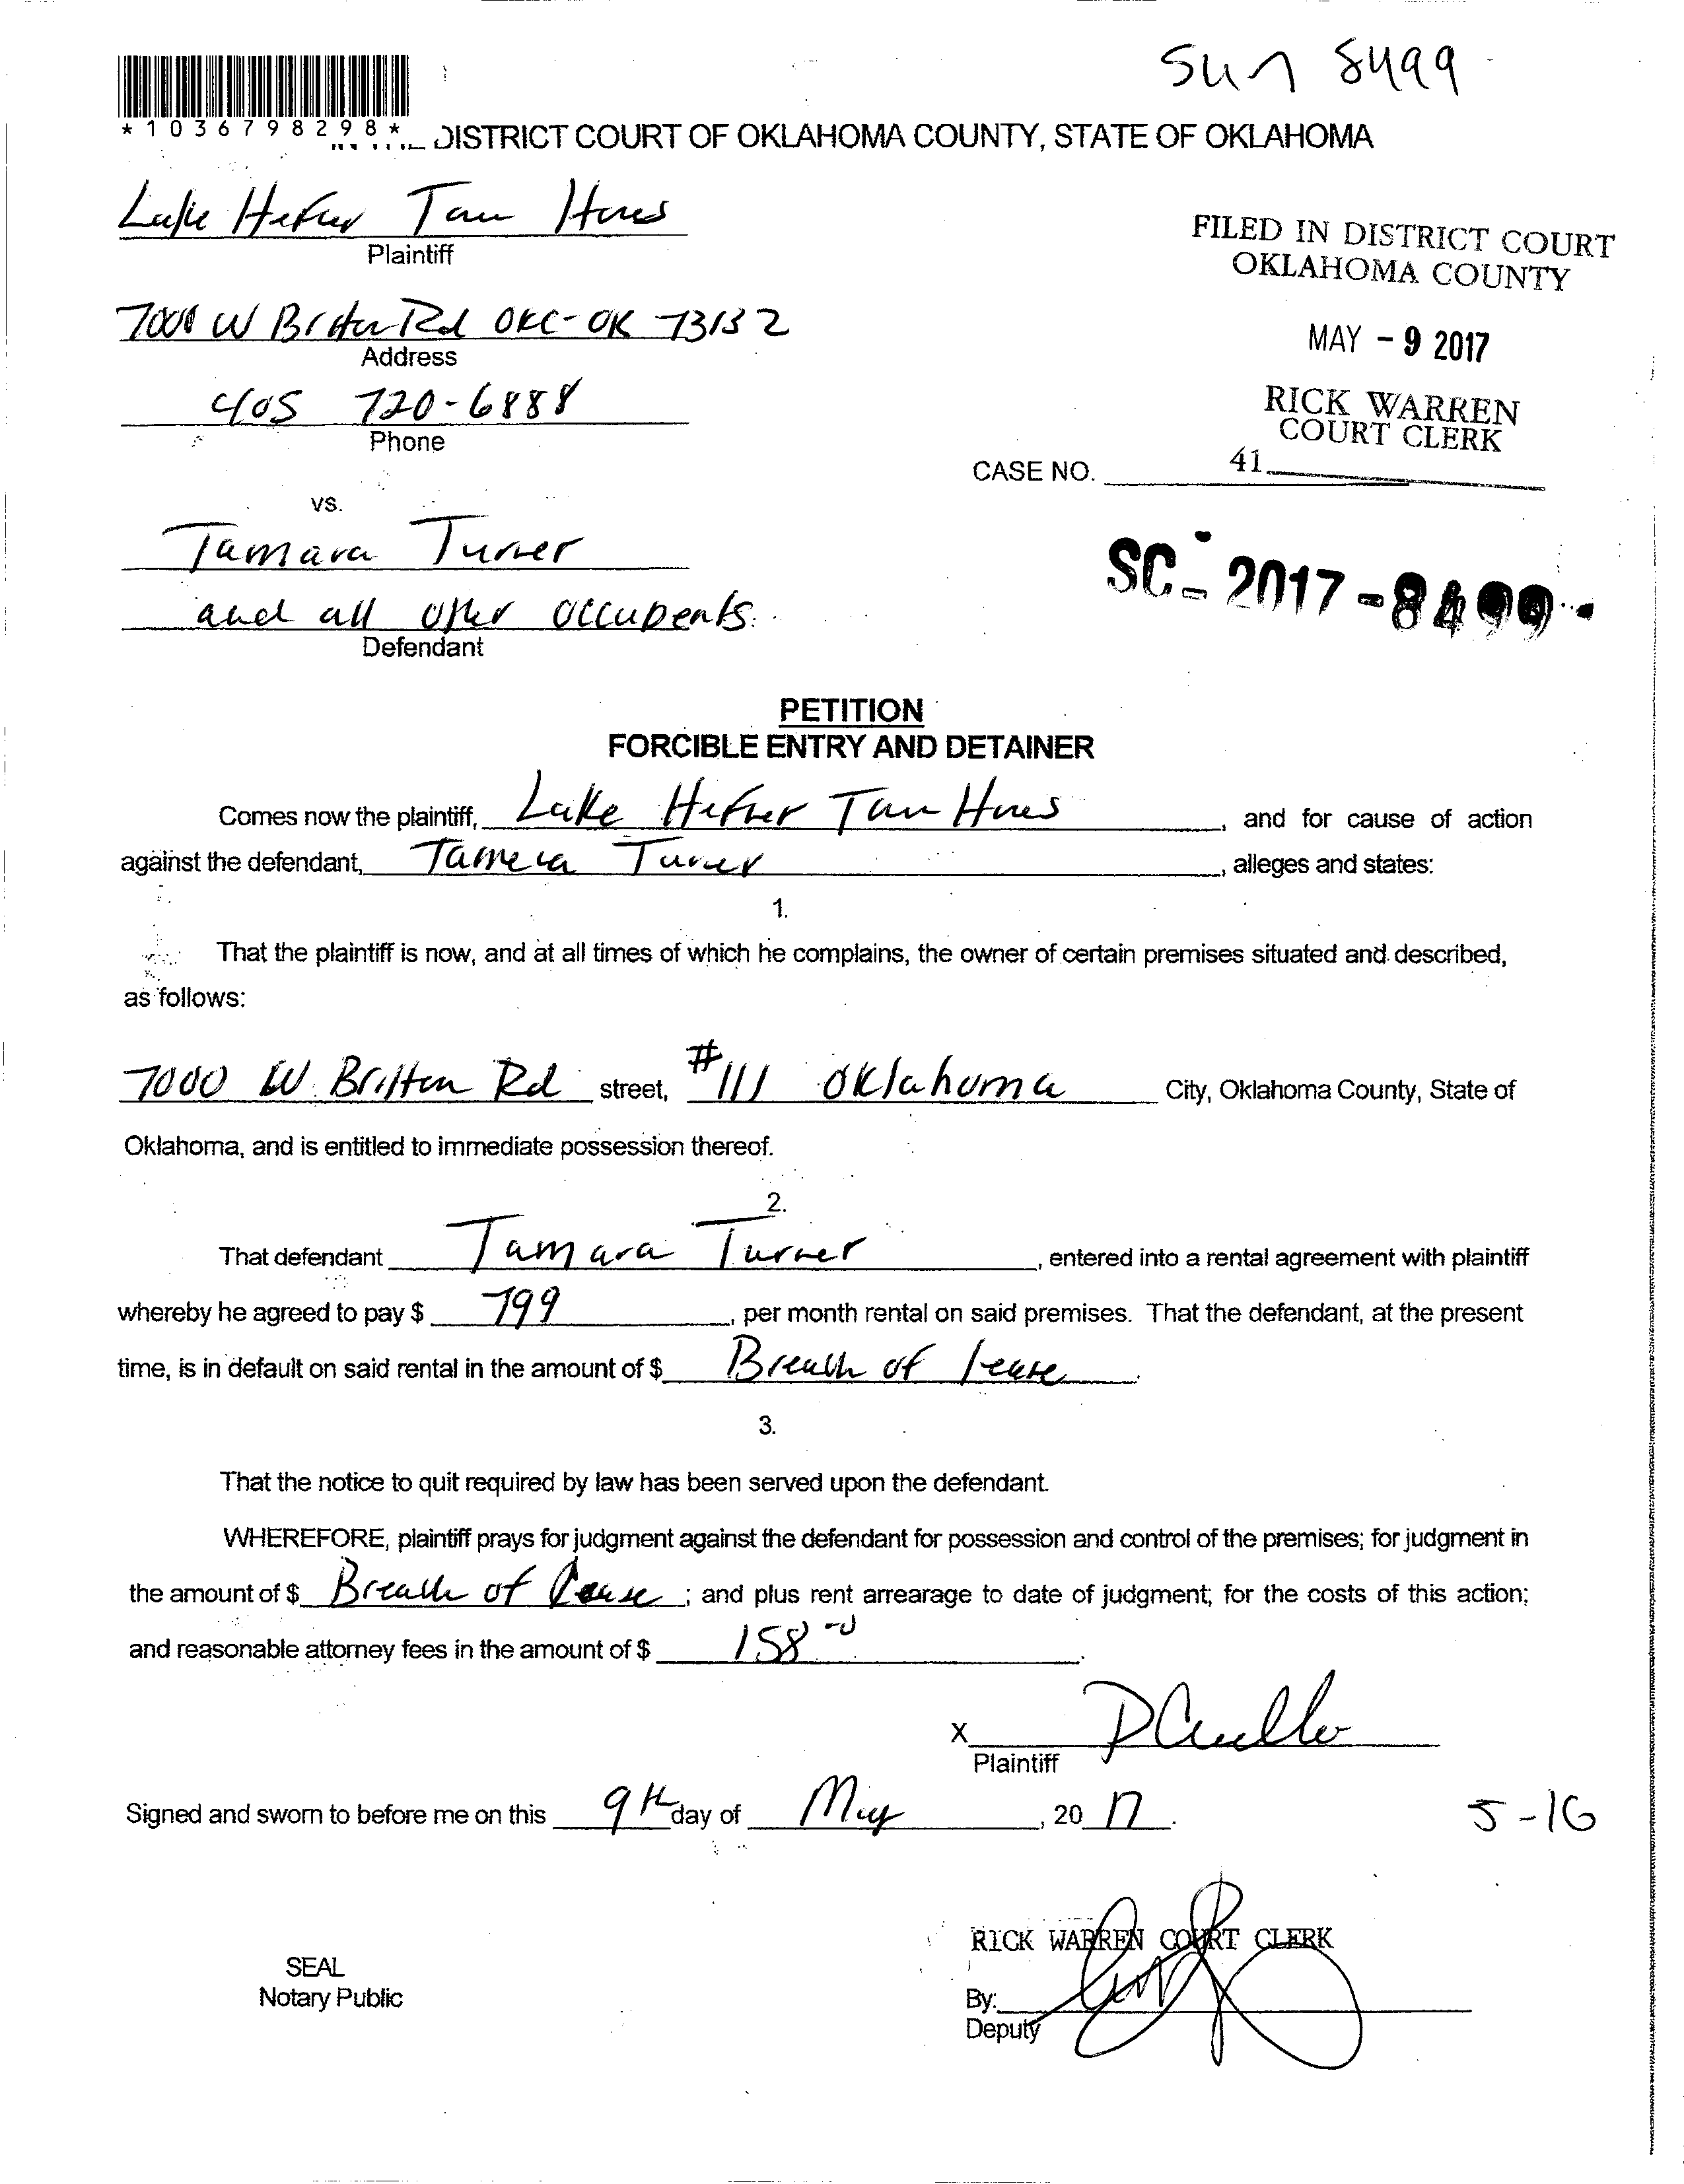 Sun 8499
*1036798298*
DISTRICT COURT OF OKLAHOMA COUNTY, STATE OF OKLAHOMA
Lake Hefner Town Homes
Plaintiff
FILED IN DISTRICT COURT
OKLAHOMA COUNTY
7000 W Britton Rd OKC-OK 73132
Address
MAY - 9 2017
405 720-6888
Phone
RICK WARREN
COURT CLERK
CASE NO. 41
vs.
Tamara Turner
and all other occupents
Defendant
SC-2017-8499
PETITION
FORCIBLE ENTRY AND DETAINER
Comes now the plaintiff, Lake Hefner Town Homes, and for cause of action
against the defendant, Tamera Turner, alleges and states:
1.
That the plaintiff is now, and at all times of which he complains, the owner of certain premises situated and described,
as follows:
7000 W Britton Rd street, #111 Oklahoma City, Oklahoma County, State of
Oklahoma, and is entitled to immediate possession thereof.
2.
That defendant Tamara Turner, entered into a rental agreement with plaintiff
whereby he agreed to pay $ 799, per month rental on said premises. That the defendant, at the present
time, is in default on said rental in the amount of $ Breach of lease.
3.
That the notice to quit required by law has been served upon the defendant.
WHEREFORE, plaintiff prays for judgment against the defendant for possession and control of the premises; for judgment in
the amount of $ Breach of Lease; and plus rent arrearage to date of judgment; for the costs of this action;
and reasonable attorney fees in the amount of $ 158.
X
Plaintiff
Signed and sworn to before me on this 9th day of May, 20 17.
5-16
RICK WARREN COURT CLERK
SEAL
Notary Public
By:
Deputy